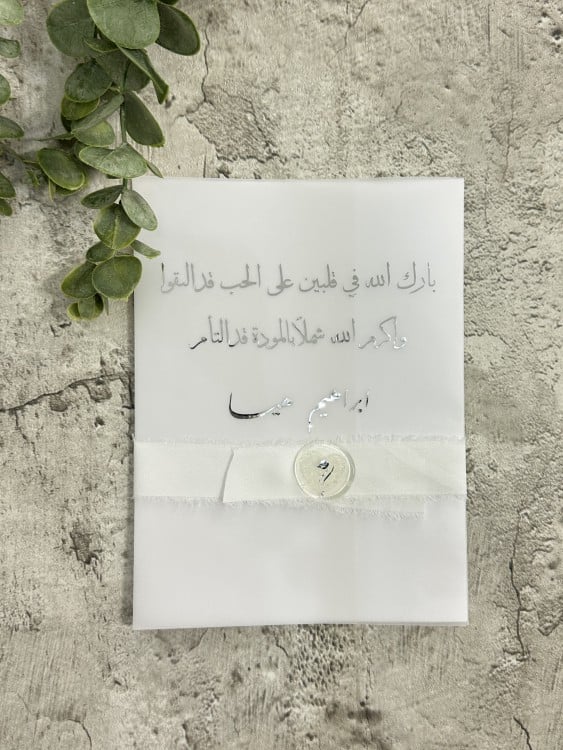 بارك الله في قلبين على الحب قد التقوا
واكرم الله شملاً بالمودة قد التأم
ابراهيم
و